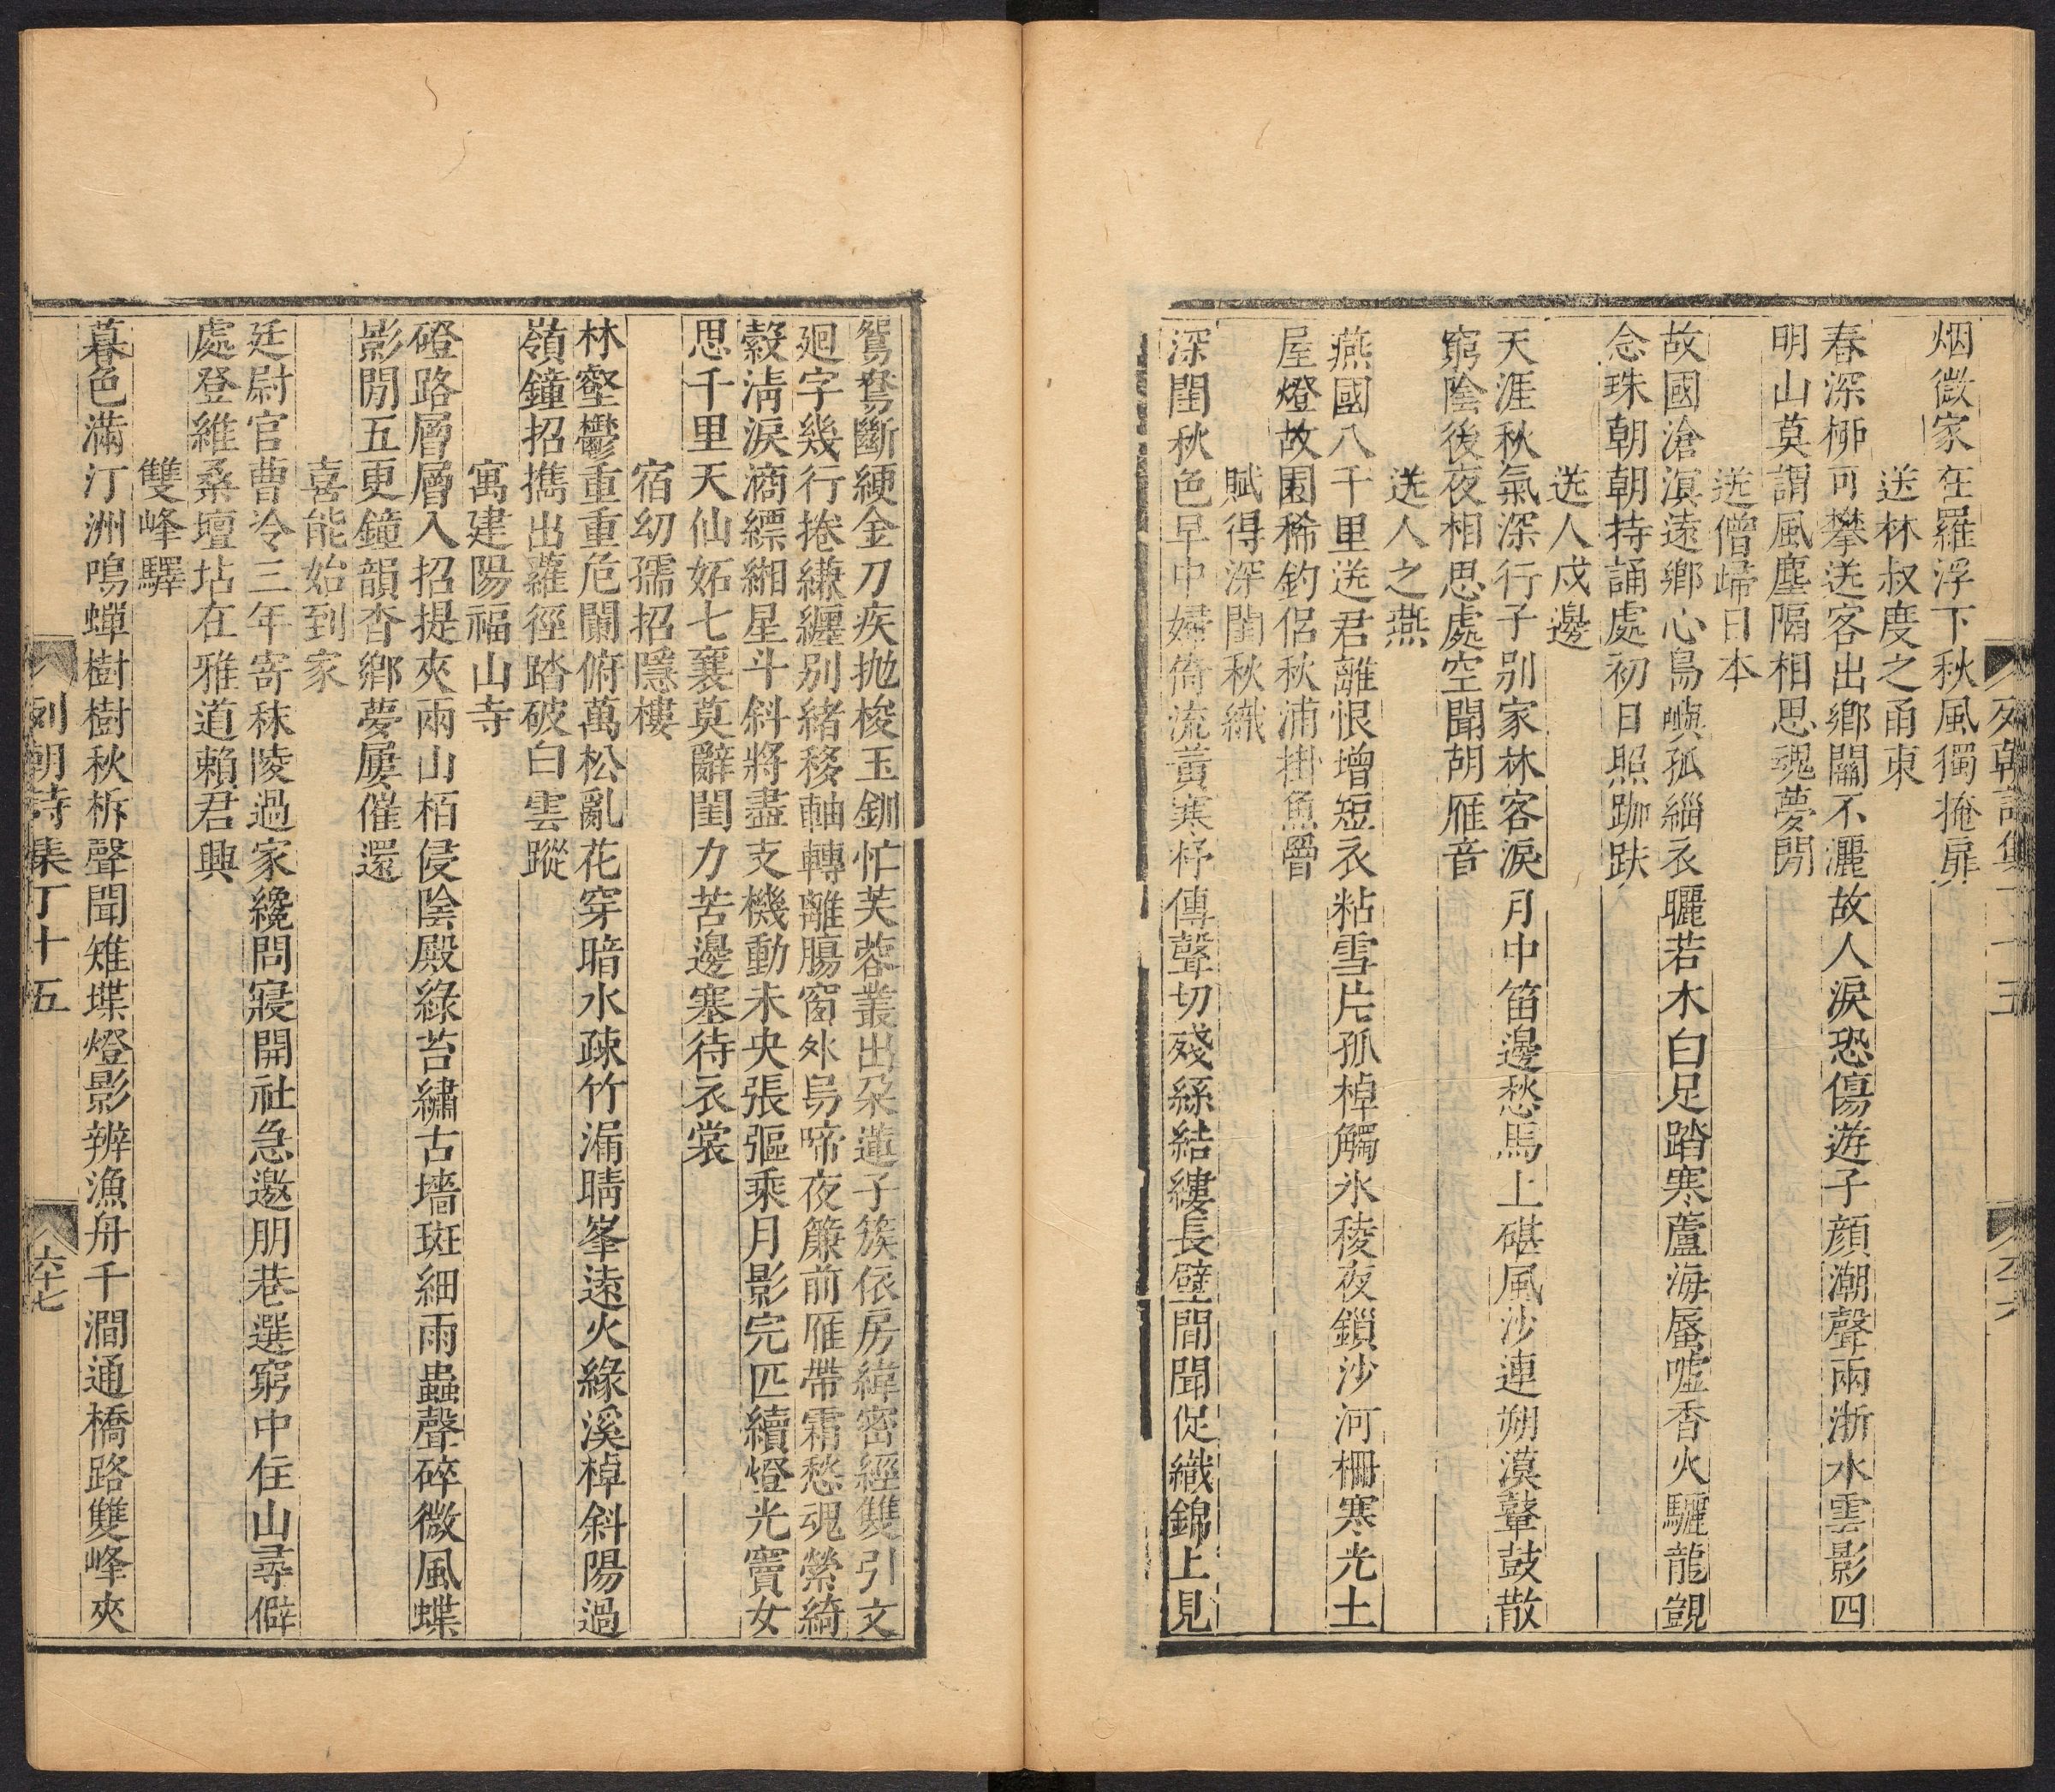 烟微家在羅浮下秋風獨掩扉
送林叔度之甬東
春深柳可攀送客出鄉關不灑故人淚恐傷遊子顔潮聲兩浙水雲影四
明山莫謂風塵隔相思魂夢閒
送僧歸日本
故國滄溟遠鄉心島嶼孤緇衣曬若木白足踏寒蘆海蜃噓香火驪龍覬
念珠朝朝持誦處初日照跏趺
送人戍邊
天涯秋氣深行子别家林客淚月中笛邊愁馬上碪風沙連朔漠鼙鼓散
窮陰後夜相思處空聞胡雁音
送人之燕
燕國八千里送君離恨增短衣粘雪片孤棹觸氷稜夜鎻沙河柵寒光土
屋燈故園稀釣侶秋浦掛魚罾
賦得深閨秋織
深閨秋色早中婦倚流黃寒杼傳聲切殘絲結縷長壁間聞促織錦上見
列朝詩集丁十五
六十六
鴛鴦斷綆金刀疾抛梭玉釧忙芙蓉叢出朶蓮子簇依房緯密經雙引文
廻字幾行捲縑纏别緒移軸轉離腸窗外烏啼夜簾前雁帶霜愁魂縈綺
縠淸淚滴縹緗星斗斜將盡支機動未央張彄乘月影完匹續燈光竇女
思千里天仙妬七襄莫辭閨力苦邊塞待衣裳
宿幻孺招隱樓
林壑鬱重重危闌俯萬松亂花穿暗水疎竹漏晴峯遠火緣溪棹斜陽過
嶺鐘招攜出蘿徑踏破白雲蹤
寓建陽福山寺
磴路層層入招提夾兩山栢侵陰殿綠苔繡古墻斑細雨蟲聲碎微風蝶
影閒五更鐘韻杳鄉夢屢催還
喜能始到家
廷尉官曹冷三年寄秣陵過家纔問寢開社急邀朋巷選窮中住山尋僻
處登維桑壇坫在雅道賴君興
雙峰驛
暮色滿汀洲鳴蟬樹樹秋柝聲聞雉堞燈影辨漁舟千澗通橋路雙峰夾
列朝詩集丁十五
六十七